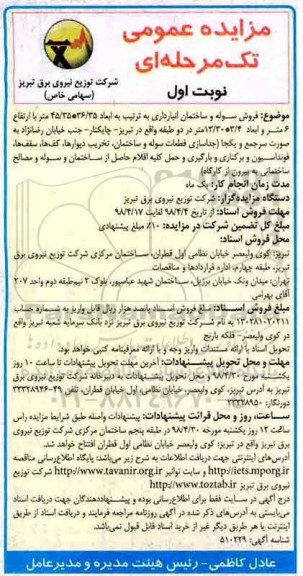 مزایده عمومی
تک‌مرحله‌ای
نوبت اول
شرکت توزیع نیروی برق تبریز
(سهامی خاص)
موضوع: فروش سوله و ساختمان انبارداری به ترتیب به ابعاد ۲۶/۳۵*۴۵/۳۵ متر با ارتفاع
۶ متر و ابعاد ۳/۴*۱۳/۳۰ متر در دو طبقه واقع در تبریز- چایکنار- جنب خیابان رضانژاد به
صورت سرجمع و یکجا (جداسازی قطعات سوله و ساختمان، تخریب دیوارها، کف‌ها، سقف‌ها،
فونداسیون و برکناری و بارگیری و حمل کلیه اقلام حاصل از ساختمان و سوله و مصالح
ساختمانی به بیرون از کارگاه)
مدت زمان انجام کار: یک ماه
دستگاه مزایده‌گزار: شرکت توزیع نیروی برق تبریز
مهلت فروش اسناد: از تاریخ ۹۸/۴/۴ لغایت ۹۸/۴/۱۷
مبلغ کل تضمین شرکت در مزایده: ۱۰٪ مبلغ پیشنهادی
محل فروش اسناد:
تبریز: کوی ولیعصر خیابان نظامی اول قطران، ساختمان مرکزی شرکت توزیع نیروی برق
تبریز، طبقه چهارم، اداره قراردادها و مناقصات
تهران: میدان ونک خیابان برزیل، ساختمان شهید عباسپور، بلوک ۲ نیم‌طبقه دوم واحد ۲۰۷
آقای بهرامی
مبلغ فروش اسناد: مبلغ فروش اسناد پانصد هزار ریال قابل واریز به شماره حساب
به نام شرکت توزیع نیروی برق تبریز نزد بانک سرمایه شعبه تبریز واقع
در کوی ولیعصر- فلکه بارنج
تحویل اسناد با ارائه مستندات واریز وجه و با ارائه معرفینامه کتبی خواهد بود.
مهلت و محل تحویل پیشنهادات: آخرین مهلت تحویل پیشنهادات تا ساعت ۱۰ روز
یکشنبه مورخ ۹۸/۴/۳۰ و محل تحویل پیشنهادات به دبیرخانه شرکت توزیع نیروی برق
تبریز به آدرس تبریز، کوی ولیعصر، خیابان نظامی، اول خیابان قطران، تلفن
دورنگار:
ساعت، روز و محل قرائت پیشنهادات: پیشنهادات واصله طبق شرایط مزایده راس
ساعت ۱۲ روز یکشنبه مورخه ۹۸/۴/۳۰ در طبقه پنجم ساختمان مرکزی شرکت توزیع نیروی
برق تبریز واقع در تبریز: کوی ولیعصر خیابان نظامی اول قطران افتتاح خواهد شد.
آدرس‌های اینترنتی جهت دریافت اطلاعات به شرح زیر می‌باشد: پایگاه اطلاع‌رسانی مناقصه
http://iets.mporg.ir و سایت توانیر http://www.tavanir.org.ir شرکت توزیع
نیروی برق تبریز http://www.toztab.ir
درج آگهی در سایت فقط برای اطلاع‌رسانی بوده و پیشنهاددهندگان جهت دریافت اسناد
می‌بایستی به آدرس‌های ذکر شده در آگهی روزنامه مراجعه فرمایند و دریافت اسناد از طریق
اینترنت یا هر طریق دیگر غیر از خرید اسناد قابل قبول نمی‌باشد.
شناسه آگهی: ۵۱۰۲۲۹
عادل کاظمی - رئیس هیئت مدیره و مدیرعامل